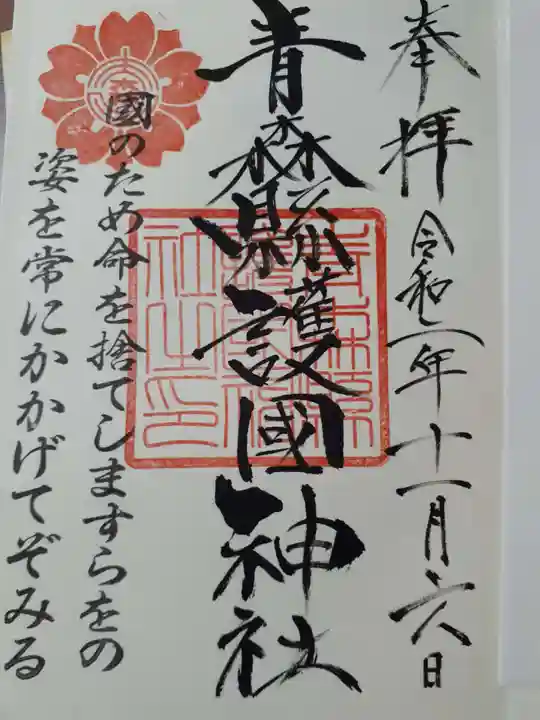 奉拝
令和二年十一月六日
青森縣護國神社
國のため命を捨てしますらをの
姿を常にかかげてぞみる